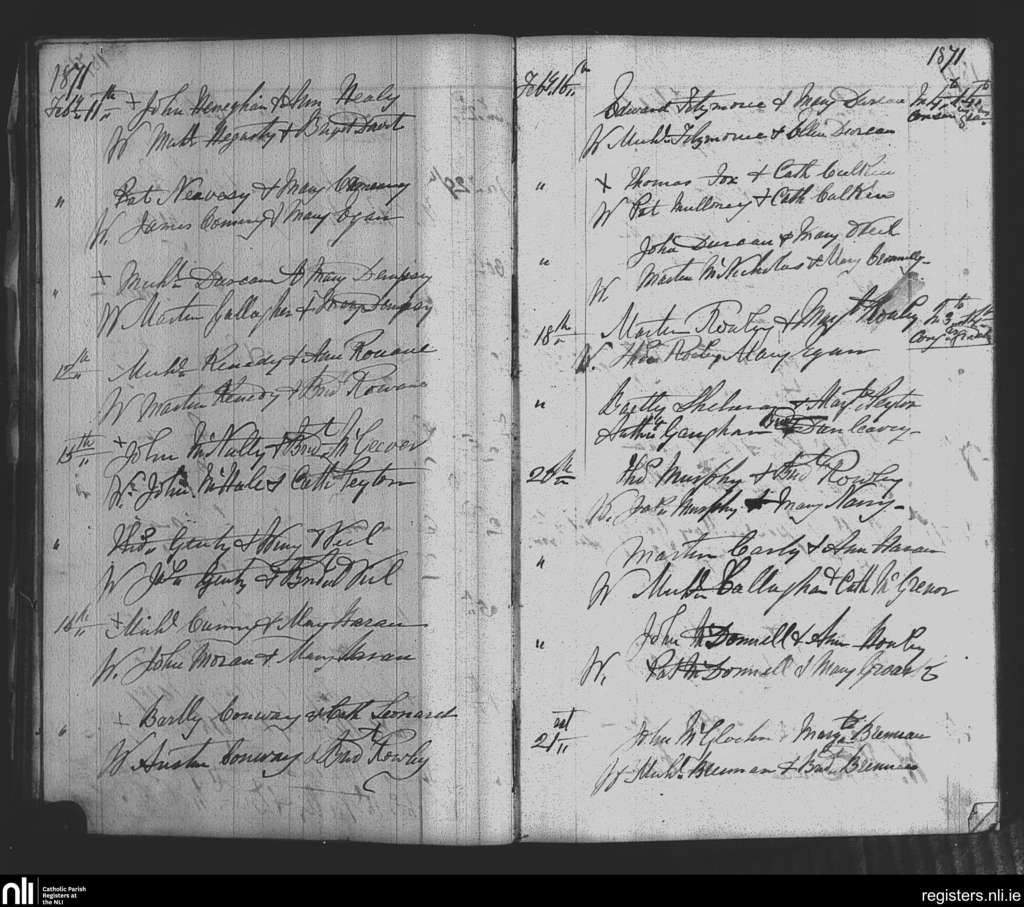 1871
Feby 11th + John Heneghan & Ann Healy
W Michl Hegarty & Bridget Davit
" Pat Neavesy & Mary
W. James & Mary Egan
" + Michl Duncan & Mary Dempsey
W Martin Gallagher & Mary Dempsey
12th Michl Kenedy & Ann Rouane
W Martin Kenedy & Brid Rowane
15th + John McNally & Bridt McGrevor
W. John McHale & Cath Peyton
" Thos Genty & Winy Neil
W John Genty & Bridt Neil
18th + Michl Cuming & Mary Haran
W. John Moran & Mary Haran
" + Bartly Conway & Cath Leonard
W Austin Conway & Brid Rowley
1871
Feby 16th Edward Fitzmorice & Mary Duncan In 4th & 4th
W Michl Fitzmorice & Ellen Duncan
" + Thomas Fox & Cath Culkin
W Pat Mulloney & Cath Culkin
" John Duncan & Mary Neil
W. Martin McNicholas & Mary
18th Martin Rowley & Margt Rowley In 3rd
W. Thos Rowley Mary Egan
" Bartly & Margt Peyton
Gaughan Brid Dunleavey
20th Thos Murphy & Bridt Rowley
W. John Murphy & Mary
" Martin Carly & Ann Haran
W Michl Callaghan & Cath McGrevor
" John McDonnell & Ann
W. Pat McDonnell & Mary
21st John & Margt Brennan
W Michl Brennan & Bridt Brennan
nli
Catholic Parish
Registers at
the NLI
registers.nli.ie